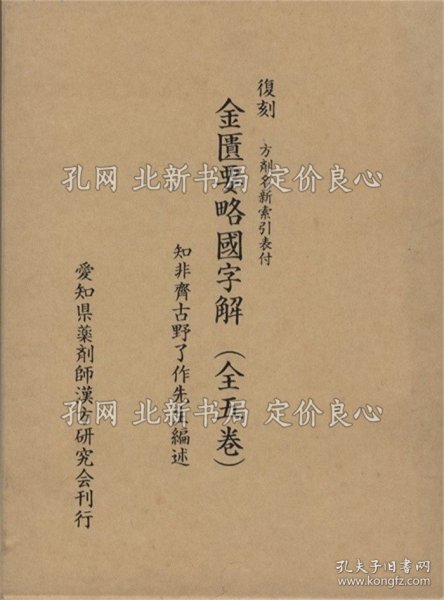 復刻
方剤名新索引表付
金匱要略國字解（全五巻）
知非齊古野了作先生編述
愛知県薬剤師漢方研究会刊行
孔网 北新书局 定价良心
孔网 北新书局 定价良心
孔网 北新书局 定价良心
孔夫子旧书网
www.kongfz.com